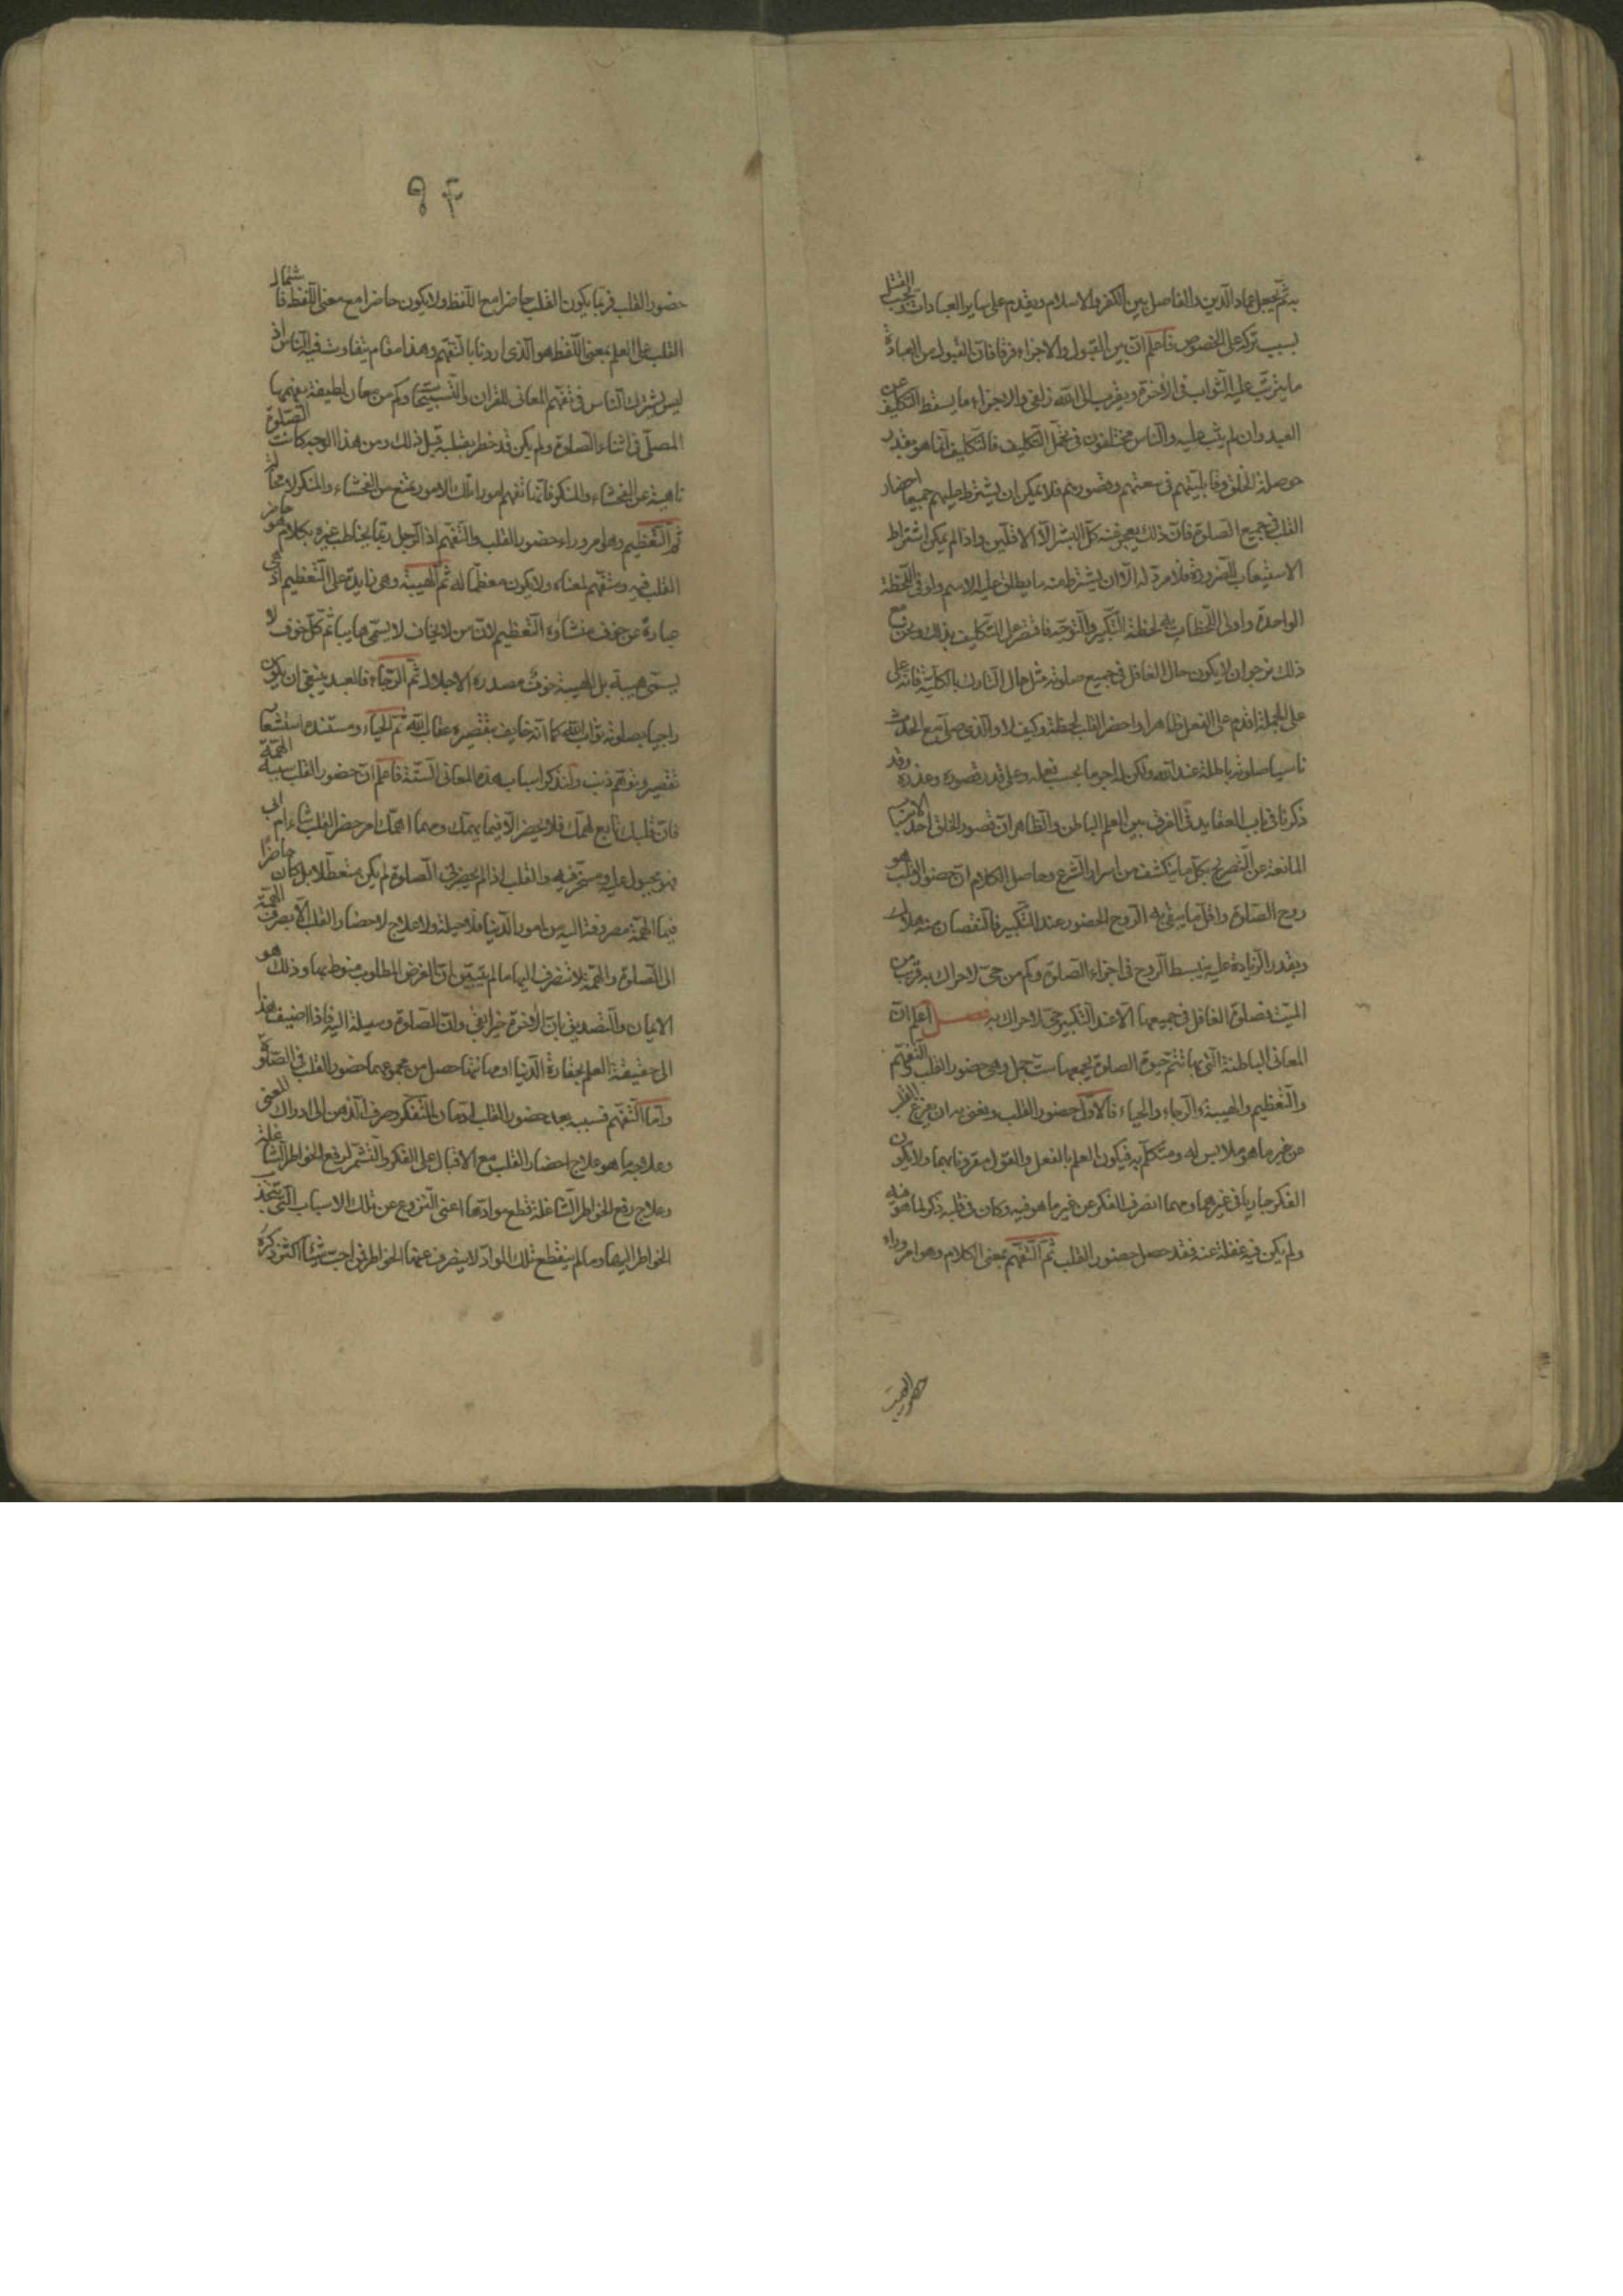 به ثم يجعل عماد الدين والفاصل بين الكفر والاسلام ويقدم على ساير العبادات ويجب القتل
بسبب تركه على الخصوص فاعلم ان بين القبول والاجزاء فرقا فان القبول من العبادة
ما يترتب عليه الثواب فى الاخرة ويقرب الى الله زلفى والاجزاء ما يسقط التكليف عن
العبد وان لم يثب عليه والناس مختلفون فى تحمل التكليف فالتكليف انما هو بقدر
حوصلة الخلق وقابليتهم فى سعتهم وقصورهم فلا يمكن ان يشترط عليهم جميعا احضار
القلب فى جميع الصلوة فان ذلك يعجز عنه كل البشر الا الاقلين واذا لم يمكن اشتراط
الاستيعاب للضرورة فلا مرد له الا ان يشترط منه ما يطلق عليه الاسم ولو فى اللحظة
الواحدة واولى اللحظات به لحظة التكبير والتوجه فاقتصر على التكليف بذلك ونحن مع
ذلك نرجو ان لا يكون حال الغافل فى جميع صلوته مثل حال التارك بالكلية فانه على
على الجملة اقدم على الفعل ظاهرا واحضر القلب لحظة وكيف لا والذى صلى مع الحدث
ناسيا صلوته باطلة عند الله ولكن له اجر ما بحسب فعله وعلى قدر قصوره وعذره وقد
ذكرنا فى باب العقايد فى الفرق بين العلم الباطن والظاهر ان قصور الخلق احد الاسباب
المانعة عن التصريح بكل ما ينكشف من اسرار الشرع وحاصل الكلام ان حضور القلب هو
روح الصلوة واقل ما يبقى به الروح الحضور عند التكبير فالنقصان منه هلاك
وبقدر الزيادة عليه ينبسط الروح فى اجزاء الصلوة وكم من حى لا حراك به قريب من
الميت فصلوة الغافل فى جميعها الا عند التكبير حى لا حراك به فصل اعلم ان
المعانى الباطنة التى بها تتم حيوة الصلوة يجمعها ست جمل وهى حضور القلب والتفهم
والتعظيم والهيبة والرجاء والحياء فالاول حضور القلب ونعنى به ان يفرغ القلب
عن غير ما هو ملابس له ومتكلم به فيكون العلم بالفعل والقول مقرونا بهما ولا يكون
الفكر جاريا فى غيرهما ومهما انصرف الفكر عن غير ما هو فيه وكان فى قلبه ذكر لما هو فيه
ولم يكن فيه غفلة عنه فقد حصل حضور القلب ثم التفهم بمعنى الكلام وهو امر وراء
٩٤
حضور القلب فربما يكون القلب حاضرا مع اللفظ ولا يكون حاضرا مع معنى اللفظ فاشتمال
القلب على العلم بمعنى اللفظ هو الذى اردنا بالتفهم وهذا مقام يتفاوت فيه الناس اذ
ليس يشترك الناس فى تفهم المعانى للقران والتسبيحات وكم من معان لطيفة يفهمها
المصلى فى اثناء الصلوة ولم يكن قد خطر بقلبه قبل ذلك ومن هذا الوجه كانت الصلوة
ناهية عن الفحشاء والمنكر فانها تفهم امورا تلك الامور تمنع من الفحشاء والمنكر لا محالة
ثم التعظيم وهو امر وراء حضور القلب والتفهم اذ الرجل ربما يخاطب غيره بكلام هو حاضر
القلب فيه ومتفهم لمعناه ولا يكون معظما له ثم الهيبة وهى زايدة على التعظيم اذ هى
عبارة عن خوف منشاؤه التعظيم لان من لا يخاف لا يسمى هايبا ثم كل خوف لا
يسمى هيبة بل الهيبة خوف مصدره الاجلال ثم الرجاء فالعبد ينبغى ان يكون
راجيا بصلوته ثواب الله كما انه خايف بتقصيره عقاب الله ثم الحياء ومستنده استشعار
تقصير وتوهم ذنب ولنذكر اسباب هذه المعانى الستة فاعلم ان حضور القلب سببه الهمة
فان قلبك تابع لهمك فلا يحضر الا فيما يهمك ومهما اهمك امر حضر القلب شاء ام ابى
فهو مجبول عليه ومسخر فيه والقلب اذا لم يحضر فى الصلوة لم يكن متعطلا بل كان حاضرا
فيما الهمة مصروفة اليه من امور الدنيا فلا حيلة ولا علاج لاحضار القلب الا بصرف الهمة
الى الصلوة والهمة لا تنصرف اليها ما لم يتبين ان الغرض المطلوب منوط بها وذلك هو
الايمان والتصديق بان الاخرة خير وابقى وان الصلوة وسيلة اليه فاذا اضيف هذا
الى حقيقة العلم بحقارة الدنيا ومهانتها حصل من مجموعهما حضور القلب فى الصلوة
واما التفهم فسببه بعد حضور القلب ادمان التفكر وصرف الذهن الى ادراك المعنى
وعلاجه ما هو علاج احضار القلب مع الاقبال على الفكر والتشمر لرفع الخواطر الشاغلة
وعلاج رفع الخواطر الشاغلة قطع موادها اعنى النزوع عن تلك الاسباب التى تنجذب
الخواطر اليها وما لم ينقطع تلك المواد لا ينصرف عنها الخواطر فمن احب شيئا اكثر ذكره